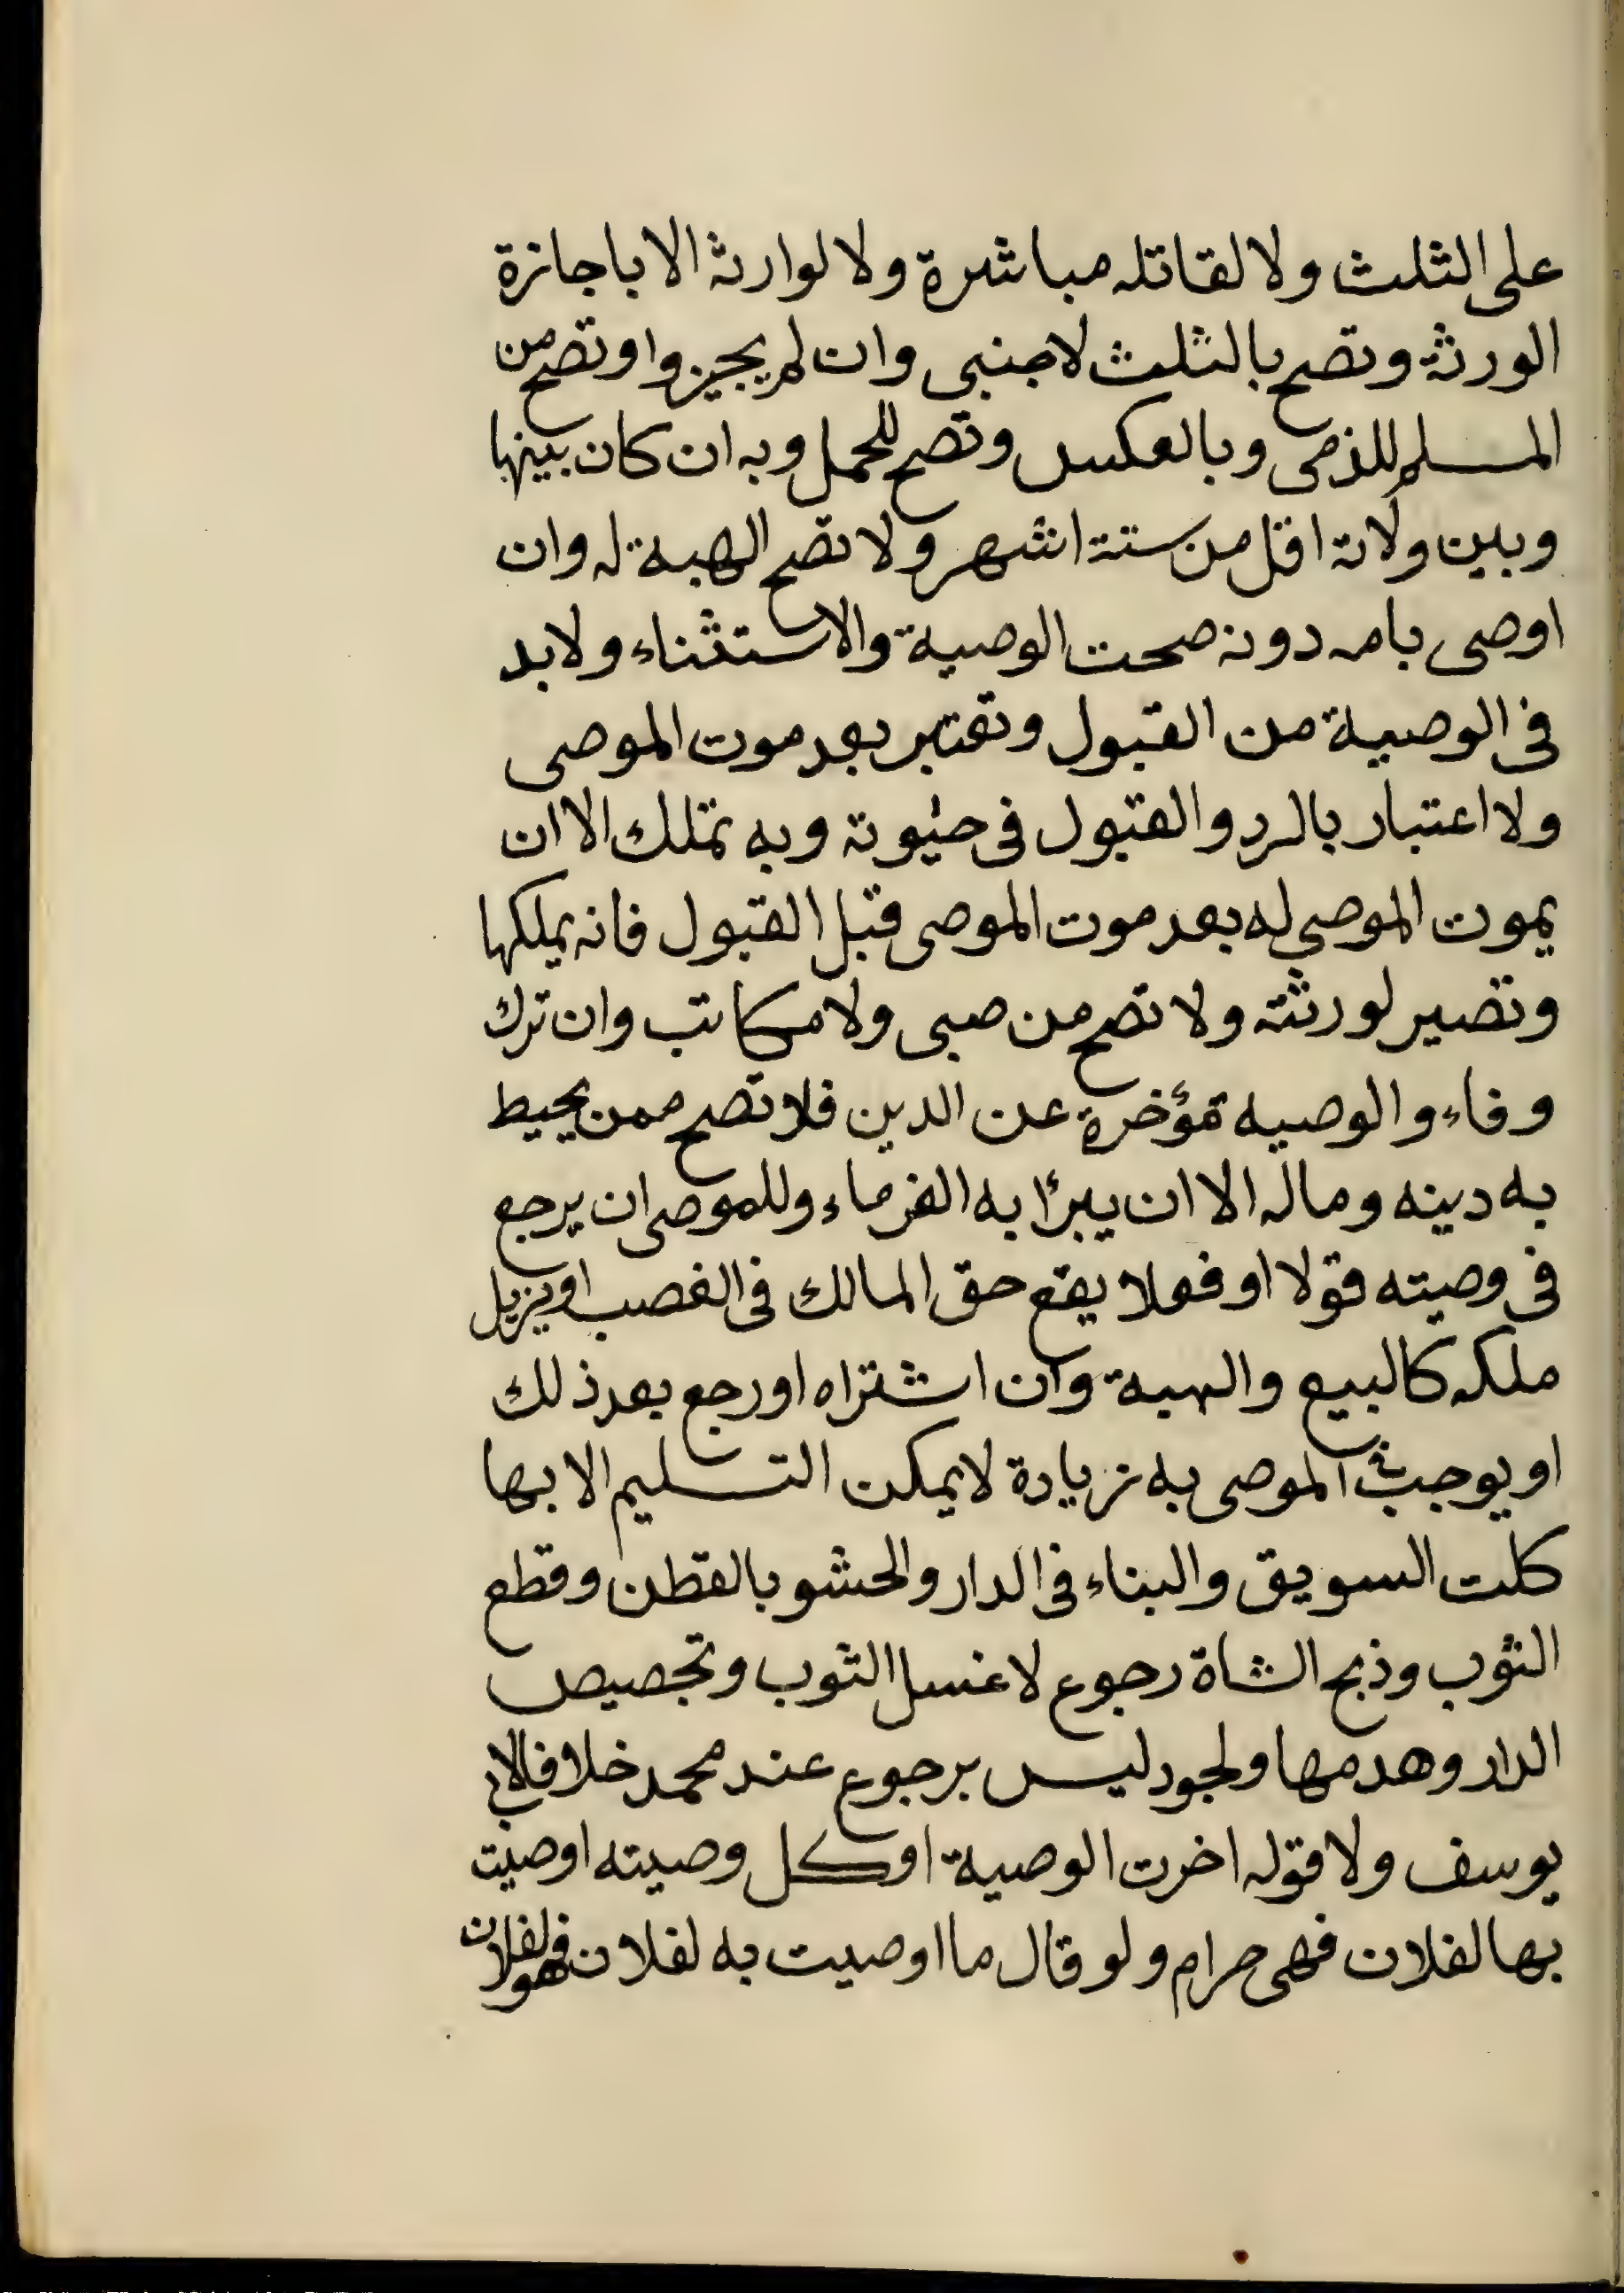 على الثلث ولا لقاتله مباشرة ولا لوارثه الا باجازة
الورثة وتصح بالثلث لاجنبى وان لم يجيزوا وتصح من
المسلم للذمى وبالعكس وتصح للحمل وبه ان كان بينها
وبين ولاته اقل من ستة اشهر ولا تصح الهبة له وان
اوصى بامه دونه صحت الوصية والاستثناء ولا بد
فى الوصية من القبول وتعتبر بعد موت الموصى
ولا اعتبار بالرد والقبول فى حيوته وبه تملك الا ان
يموت الموصى له بعد موت الموصى قبل القبول فانه يملكها
وتصير لورثته ولا تصح من صبى ولا مكاتب وان ترك
وفاء والوصيه مؤخرة عن الدين فلا تصح ممن يحيط
به دينه وماله الا ان يبرأ به الغرماء وللموصى ان يرجع
فى وصيته قولا او فعلا يقع حق المالك فى الغصب او يزيل
ملكه كالبيع والهبة وان اشتراه اورجع بعد ذلك
او يوجب فى الموصى به زيادة لا يمكن التسليم الا بها
كلت السويق والبناء فى الدار والحشو بالقطن وقطع
الثوب وذبح الشاة رجوع لا غسل الثوب وتجصيص
الدار وهدمها ولجود ليس برجوع عند محمد خلافا لابى
يوسف ولا قوله اخرت الوصية او كل وصيته اوصيت
بها لفلان فهى حرام ولو قال ما اوصيت به لفلان فهو لفلان